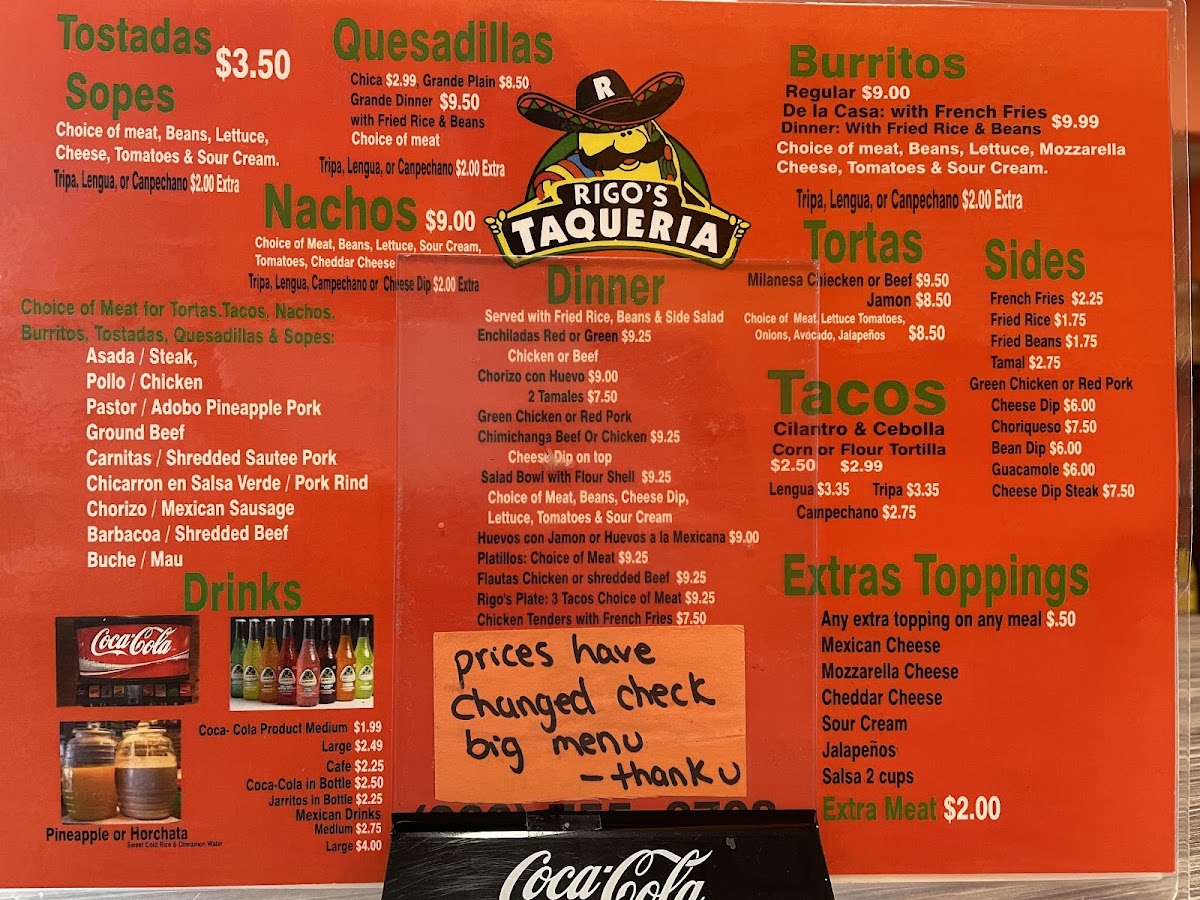 Tostadas
$3.50
Sopes
Choice of meat, Beans, Lettuce,
Cheese, Tomatoes & Sour Cream.
Tripa, Lengua, or Canpechano $2.00 Extra
Quesadillas
Chica $2.99 Grande Plain $8.50
Grande Dinner $9.50
with Fried Rice & Beans
Choice of meat
Tripa, Lengua, or Canpechano $2.00 Extra
Nachos $9.00
Choice of Meat, Beans, Lettuce, Sour Cream,
Tomatoes, Cheddar Cheese
Tripa, Lengua, Campechano or Cheese Dip $2.00 Extra
R
RIGO'S
TAQUERIA
Burritos
Regular $9.00
De la Casa: with French Fries
Dinner: With Fried Rice & Beans $9.99
Choice of meat, Beans, Lettuce, Mozzarella
Cheese, Tomatoes & Sour Cream.
Tripa, Lengua, or Canpechano $2.00 Extra
Choice of Meat for Tortas.Tacos, Nachos.
Burritos, Tostadas, Quesadillas & Sopes:
Asada / Steak,
Pollo / Chicken
Pastor / Adobo Pineapple Pork
Ground Beef
Carnitas / Shredded Sautee Pork
Chicarron en Salsa Verde / Pork Rind
Chorizo / Mexican Sausage
Barbacoa / Shredded Beef
Buche / Mau
Dinner
Served with Fried Rice, Beans & Side Salad
Enchiladas Red or Green $9.25
Chicken or Beef
Chorizo con Huevo $9.00
2 Tamales $7.50
Green Chicken or Red Pork
Chimichanga Beef Or Chicken $9.25
Cheese Dip on top
Salad Bowl with Flour Shell $9.25
Choice of Meat, Beans, Cheese Dip,
Lettuce, Tomatoes & Sour Cream
Huevos con Jamon or Huevos a la Mexicana $9.00
Platillos: Choice of Meat $9.25
Flautas Chicken or shredded Beef $9.25
Rigo's Plate: 3 Tacos Choice of Meat $9.25
Chicken Tenders with French Fries $7.50
Tortas
Milanesa Chiecken or Beef $9.50
Jamon $8.50
Choice of Meat, Lettuce Tomatoes,
Onions, Avocado, Jalapeños $8.50
Tacos
Cilantro & Cebolla
Corn or Flour Tortilla
$2.50 $2.99
Lengua $3.35 Tripa $3.35
Campechano $2.75
Sides
French Fries $2.25
Fried Rice $1.75
Fried Beans $1.75
Tamal $2.75
Green Chicken or Red Pork
Cheese Dip $6.00
Choriqueso $7.50
Bean Dip $6.00
Guacamole $6.00
Cheese Dip Steak $7.50
Drinks
Coca-Cola
Coca- Cola Product Medium $1.99
Large $2.49
Cafe $2.25
Coca-Cola in Bottle $2.50
Jarritos in Bottle $2.25
Mexican Drinks
Medium $2.75
Large $4.00
Pineapple or Horchata
Sweet Cold Rice & Cinnamon Water
prices have
changed check
big menu
- thank u
Extras Toppings
Any extra topping on any meal $.50
Mexican Cheese
Mozzarella Cheese
Cheddar Cheese
Sour Cream
Jalapeños
Salsa 2 cups
Extra Meat $2.00
Coca-Cola